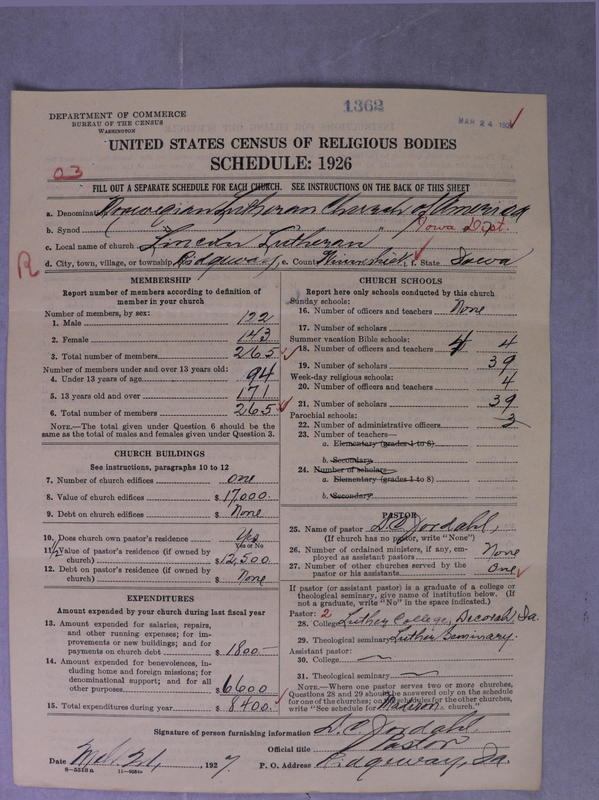 1362
DEPARTMENT OF COMMERCE
BUREAU OF THE CENSUS
WASHINGTON
MAR 24 192
UNITED STATES CENSUS OF RELIGIOUS BODIES
SCHEDULE: 1926
03
FILL OUT A SEPARATE SCHEDULE FOR EACH CHURCH. SEE INSTRUCTIONS ON THE BACK OF THIS SHEET
a. Denomination Norwegian Lutheran Church of America
b. Synod " Iowa Dist.
c. Local name of church Lincoln Lutheran
R
d. City, town, village, or township Ridgeway, e. County Winneshiek, f. State Iowa
MEMBERSHIP
Report number of members according to definition of
member in your church
Number of members, by sex:
1. Male 122
2. Female 143
3. Total number of members 265
Number of members under and over 13 years old:
4. Under 13 years of age 94
5. 13 years old and over 171
6. Total number of members 265
NOTE.—The total given under Question 6 should be
the same as the total of males and females given under Question 3.
CHURCH BUILDINGS
See instructions, paragraphs 10 to 12
7. Number of church edifices one
8. Value of church edifices $ 17,000.
9. Debt on church edifices $ None
10. Does church own pastor's residence? Yes
Yes or No
11. 1/2 Value of pastor's residence (if owned by
church) $ 12,500
12. Debt on pastor's residence (if owned by
church) $ None
EXPENDITURES
Amount expended by your church during last fiscal year
13. Amount expended for salaries, repairs,
and other running expenses; for im-
provements or new buildings; and for
payments on church debt $ 1800—
14. Amount expended for benevolences, in-
cluding home and foreign missions; for
denominational support; and for all
other purposes $ 6600
15. Total expenditures during year $ 8400.
CHURCH SCHOOLS
Report here only schools conducted by this church
Sunday schools:
16. Number of officers and teachers None
17. Number of scholars
Summer vacation Bible schools:
18. Number of officers and teachers 4 4
19. Number of scholars 39
Week-day religious schools:
20. Number of officers and teachers 4
21. Number of scholars 39
Parochial schools:
22. Number of administrative officers 3
23. Number of teachers—
a. Elementary (grades 1 to 8)
b. Secondary
24. Number of scholars—
a. Elementary (grades 1 to 8)
b. Secondary
PASTOR
25. Name of pastor D.C. Jordahl,
(If church has no pastor, write "None")
26. Number of ordained ministers, if any, em-
ployed as assistant pastors None
27. Number of other churches served by the
pastor or his assistants One
If pastor (or assistant pastor) is a graduate of a college or
theological seminary, give name of institution below. (If
not a graduate, write "No" in the space indicated.)
Pastor: 2
28. College Luther College, Decorah, Ia.
29. Theological seminary Luther Seminary.
Assistant pastor:
30. College —
31. Theological seminary —
NOTE.—Where one pastor serves two or more churches,
Questions 28 and 29 should be answered only on the schedule
for one of the churches; on the schedules for the other churches,
write "See schedule for Madison church."
Signature of person furnishing information D.C. Jordahl
Official title Pastor
Date Mch. 21, 1927. P. O. Address Ridgeway, Ia.
8—5518a